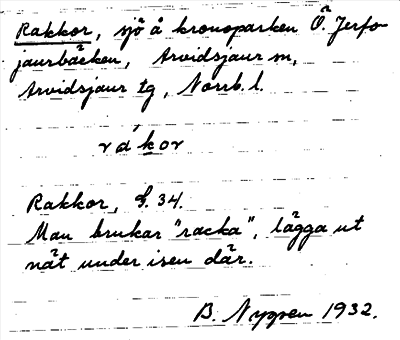 Rakkor, sjö å kronoparken Ö. Jerfo-
jaurbäcken, Arvidsjaur sn,
Arvidsjaur tg, Norrb. l.
rákor
Rakkor, S. 34.
Man brukar "racka", lägga ut
nät under isen där.
B. Nygren 1932.